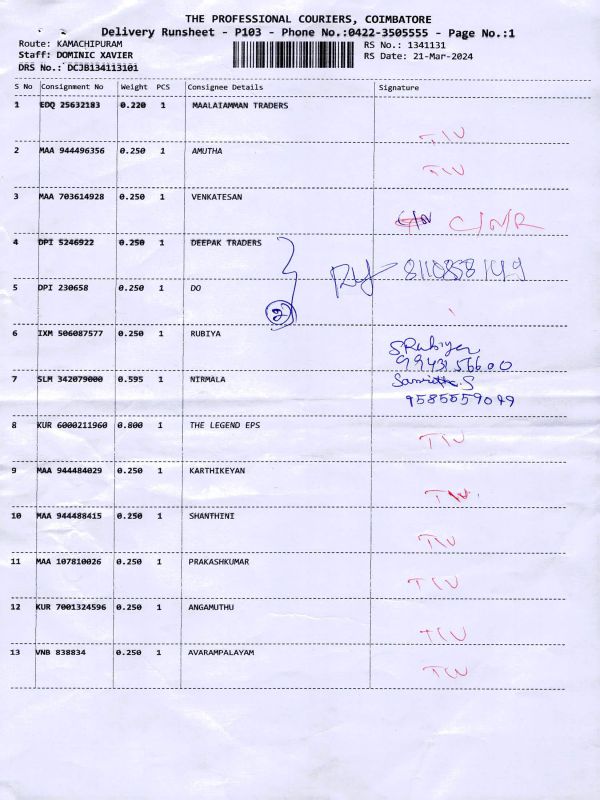 THE PROFESSIONAL COURIERS, COIMBATORE
Delivery Runsheet - P103 - Phone No.:0422-3505555 - Page No.:1
Route: KAMACHIPURAM RS No.: 1341131
Staff: DOMINIC XAVIER RS Date: 21-Mar-2024
DRS No.: DCJB134113101
S No Consignment No Weight PCS Consignee Details Signature
1 EDQ 25632183 0.220 1 MAALAIAMMAN TRADERS
2 MAA 944496356 0.250 1 AMUTHA
3 MAA 703614928 0.250 1 VENKATESAN C/N/R
4 DPI 5246922 0.250 1 DEEPAK TRADERS
8110858149
5 DPI 230658 0.250 1 DO
2
6 IXM 506087577 0.250 1 RUBIYA S.Rubiya
9943156600
7 SLM 342079000 0.595 1 NIRMALA
9585559049
8 KUR 6000211960 0.800 1 THE LEGEND EPS
9 MAA 944484029 0.250 1 KARTHIKEYAN
10 MAA 944488415 0.250 1 SHANTHINI
11 MAA 107810026 0.250 1 PRAKASHKUMAR
12 KUR 7001324596 0.250 1 ANGAMUTHU
13 VNB 838834 0.250 1 AVARAMPALAYAM